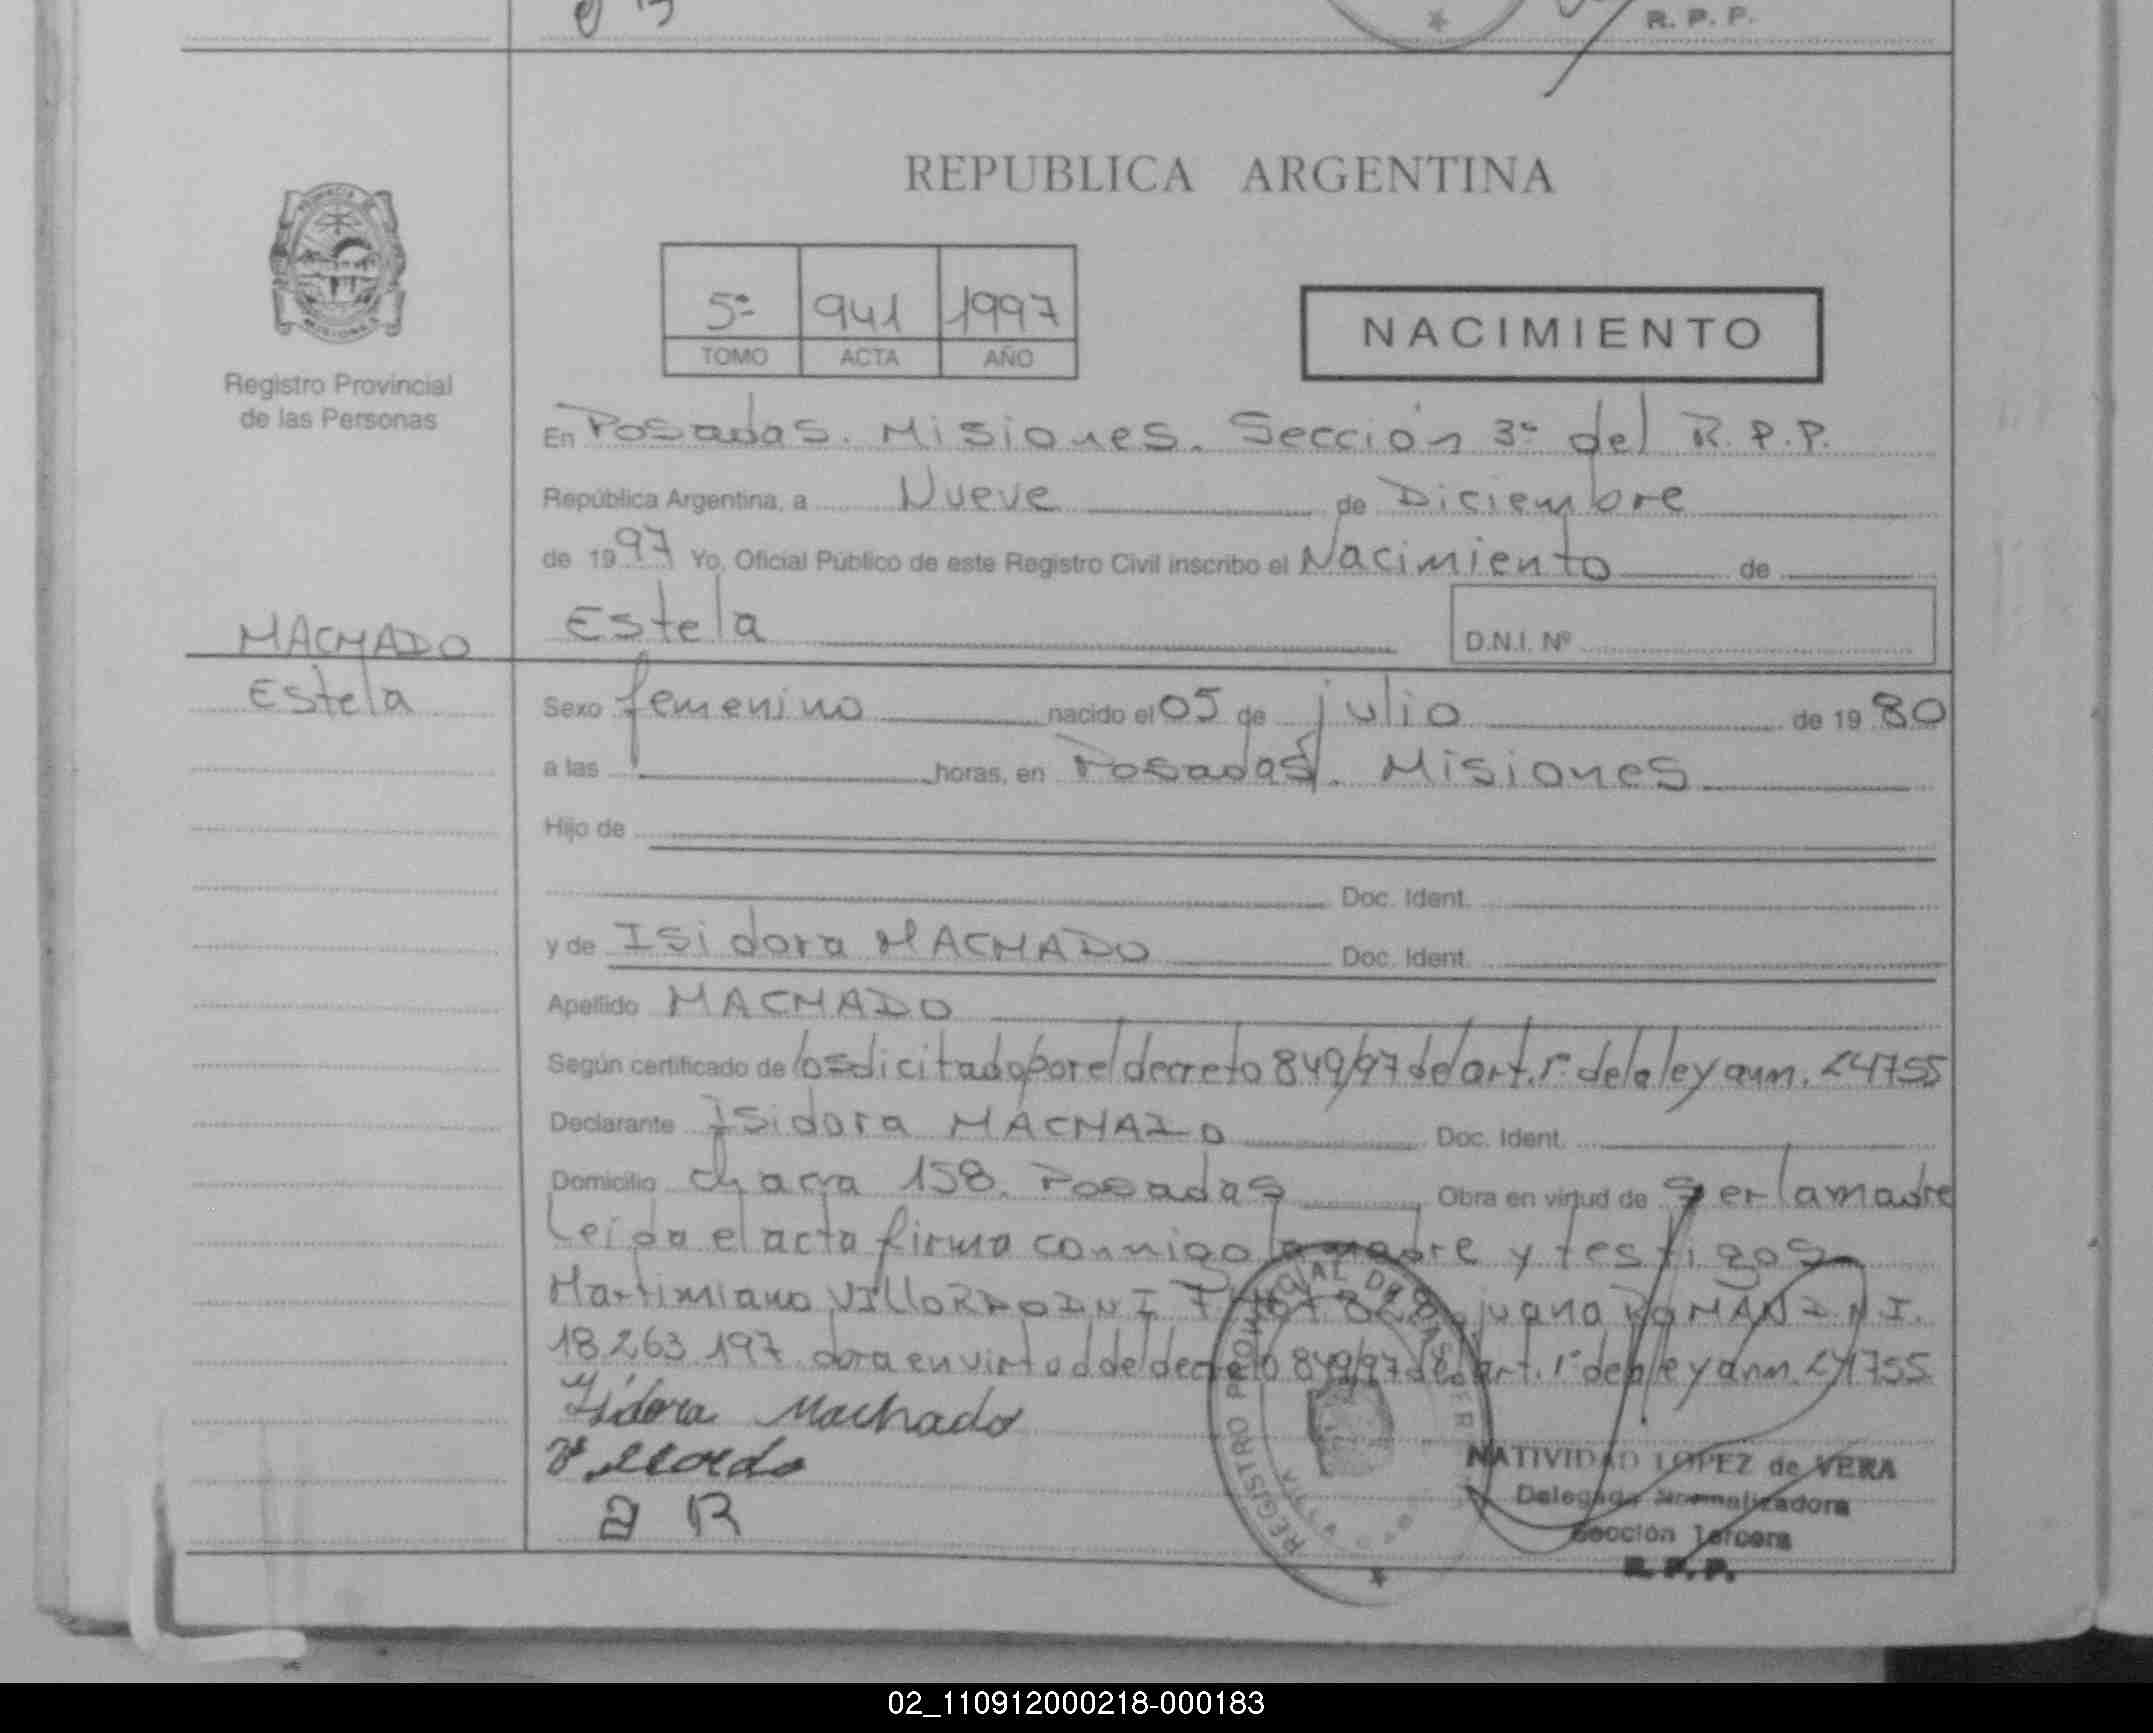 R. P. P.
REPUBLICA ARGENTINA
5º 941 1997
TOMO ACTA AÑO
NACIMIENTO
Registro Provincial
de las Personas
En Posadas. Misiones. Sección 3º del R.P.P.
República Argentina, a Nueve de Diciembre
de 1997 Yo, Oficial Público de este Registro Civil inscribo el Nacimiento de
MACHADO
Estela
Estela
D.N.I. Nº
Sexo femenino nacido el 05 de julio de 1980
a las horas, en Posadas. Misiones
Hijo de
Doc. Ident.
y de Isidora MACHADO Doc. Ident.
Apellido MACHADO
Según certificado de lo solicitado por el decreto 849/97 del art. 1º de la ley num. 24755
Declarante Isidora MACHADO Doc. Ident.
Domicilio chacra 158. Posadas Obra en virtud de ser la madre
Leída el acta firma conmigo la madre y testigos
Martimiano VILLORDO D N I juana ROMAN D.N.I.
18.263.197 obra en virtud del decreto 849/97 del art. 1º de la ley num. 24755
Isidora Machado
Villordo
J R
REGISTRO PROVINCIAL DE LAS PER
NATIVIDAD LOPEZ de VERA
Delegada Normalizadora
Sección Tercera
R. P. P.
02_110912000218-000183